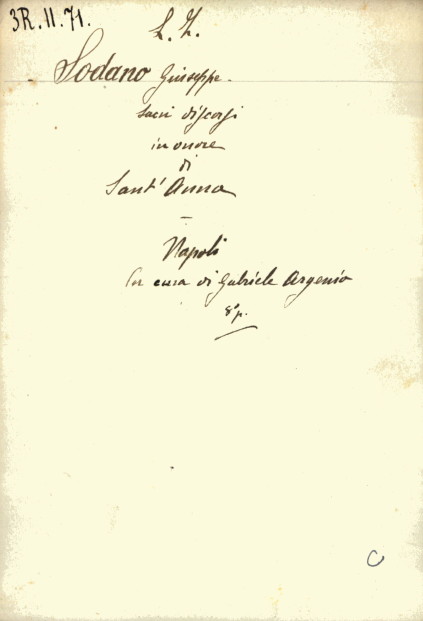 3R.11.71.
L. Z.
Sodano Giuseppe.
Sacri discorsi
in onore
di
Sant' Anna
–
Napoli
Per cura di Gabriele Argenio
8° p.
C